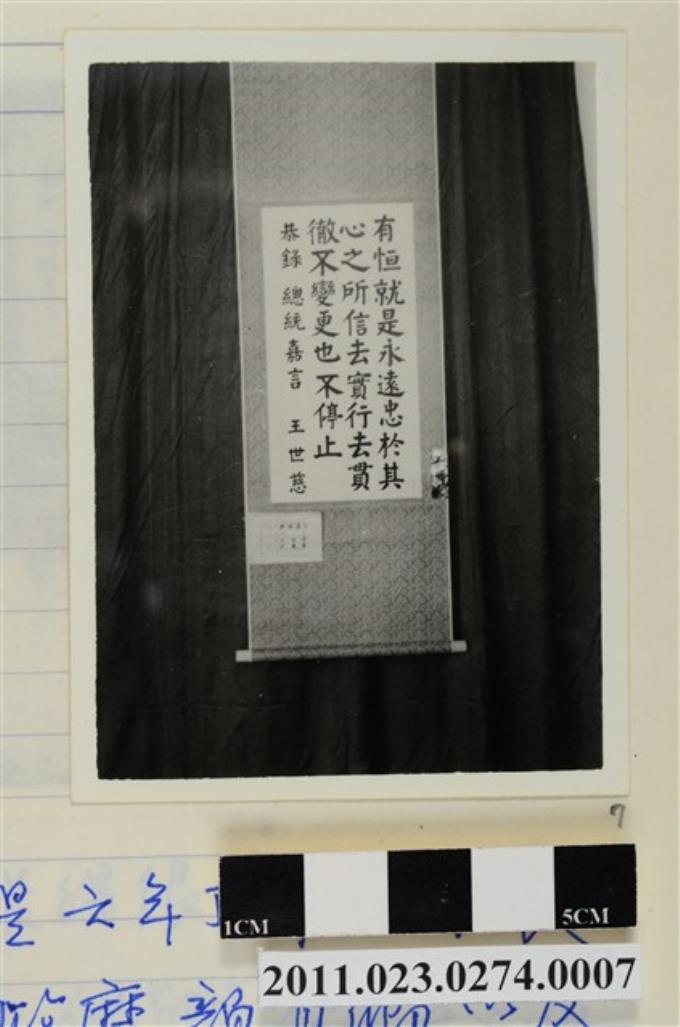 有恒就是永遠忠於其
心之所信去實行去貫
徹不變更也不停止
恭錄 總統嘉言 王世慈
7
是六年
1CM
5CM
2011.023.0274.0007